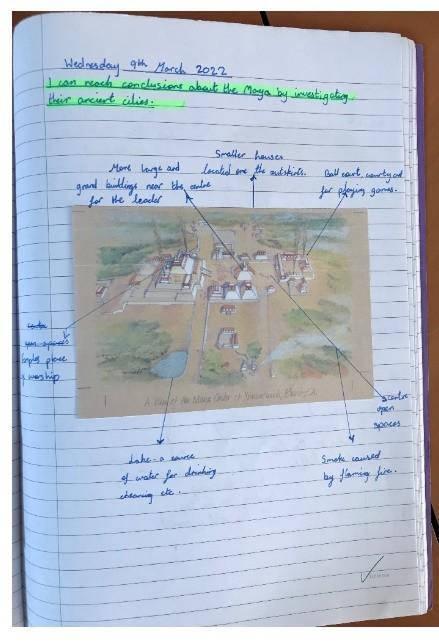 Wednesday 9th March 2022
I can reach conclusions about the Maya by investigating
their ancient cities.
Smaller houses
located are the outskirts.
More large and
grand buildings near the centre
for the leader
Ball court, courtyard
for playing games.
temples place
worship
centre
open
spaces
A View of the Maya Center of
Lake - a source
of water for drinking
cleaning etc.
Smoke caused
by flaming fire.